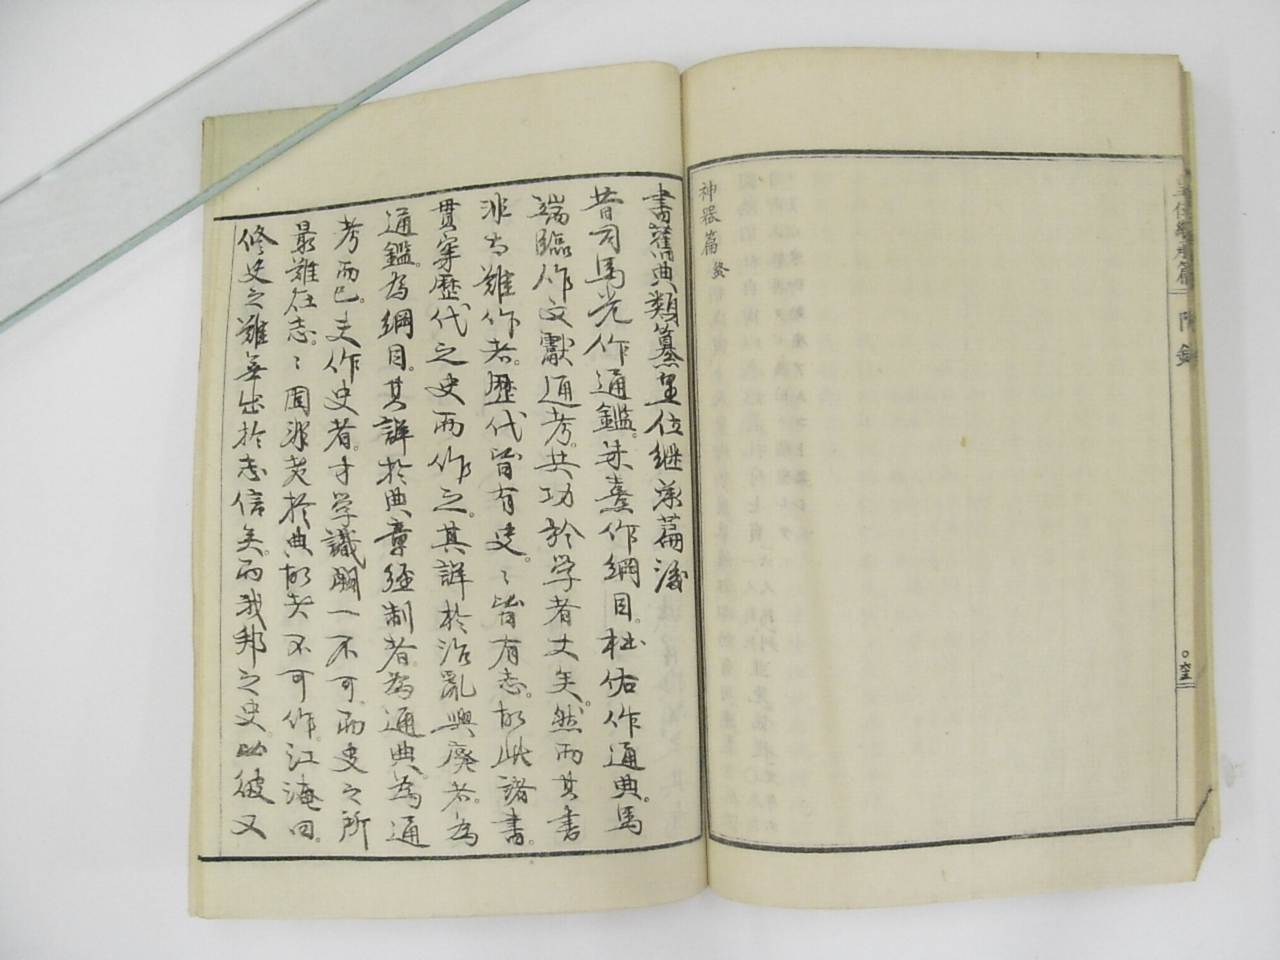 皇位継承篇 附録
○空
神器篇終
書舊典類纂皇位継承篇後
昔司馬光作通鑑。朱熹作綱目。杜佑作通典。馬
端臨作文獻通考。其功於学者丈矣。然而其書
非古難作者。歴代皆有史。〻皆有志。故此諸書。
貫穿歴代之史而作之。其詳於治亂興廢者。為
通鑑。為綱目。其詳於典章經制者。為通典。為通
考而已。夫作史者。才学識闕一不可。而史之所
最難在志。〻固非熒於典故者不可作。江淹曰。
修史之難無出於志信矣。而我邦之史。此彼又